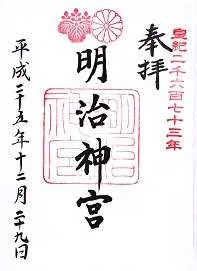 皇紀二千六百七十三年
奉拝
明治神宮
明治神宮
平成二十五年十二月二十九日